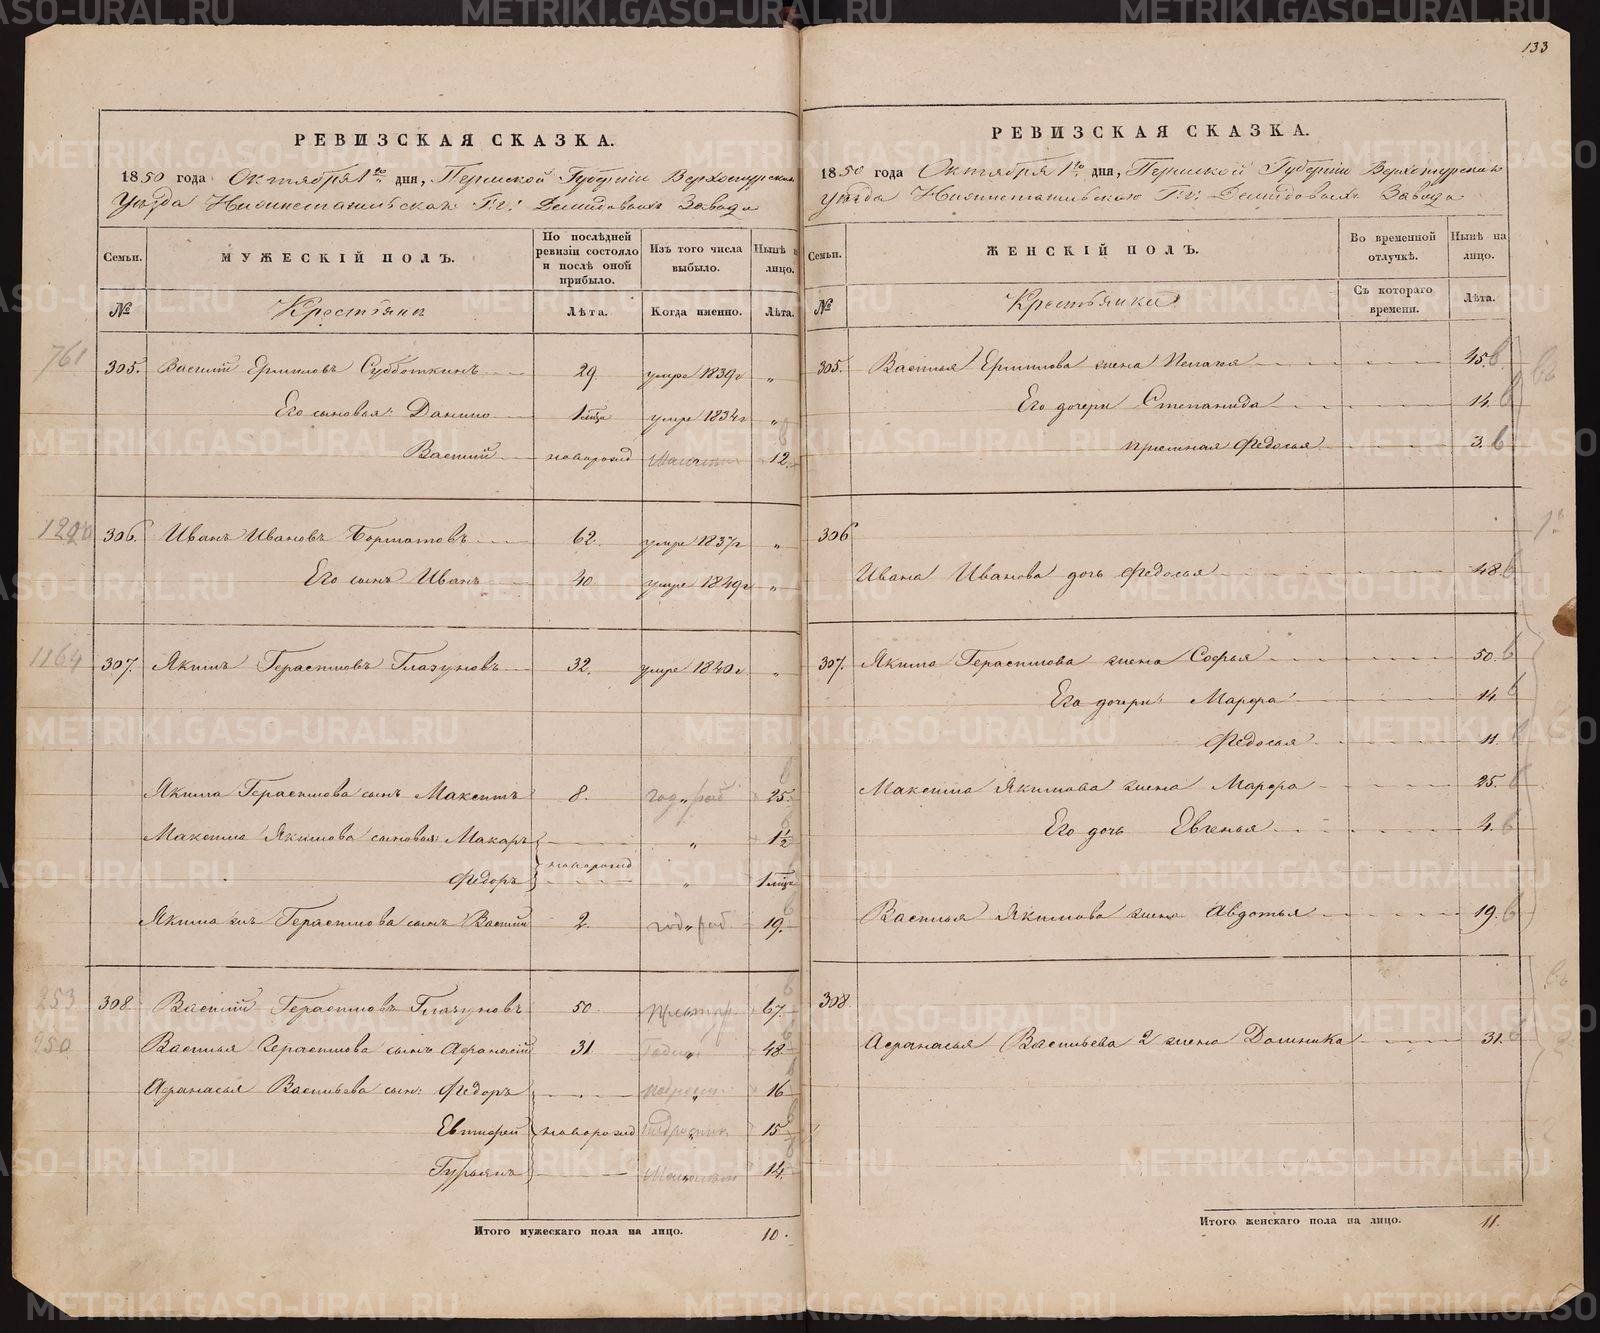 133
РЕВИЗСКАЯ СКАЗКА.
1850 года Октября 1го дня, Пермской Губерніи Верхотурскаго
Уѣзда Нижнетагильскаго Г.г. Демидовыхъ Завода
Семьи. МУЖЕСКІЙ ПОЛЪ. По послѣдней ревизіи состояло и послѣ оной прибыло. Изъ того числа выбыло. Нынѣ на лицо.
№ Крестьяне Лѣта. Когда именно. Лѣта.
761 305. Василій Ермиловъ Субботкинъ 29. умре 1839 г „
Его сыновья: Данило 1 мѣс умре 1834 г „
Василій новорожд 12.
1200 306. Иванъ Ивановъ 62. умре 1837 г „
Его сынъ Иванъ 40. умре 1849 г „
1164 307. Якимъ Герасимовъ Глазуновъ 32. умре 1840 г. „
Якима Герасимова сынъ Максимъ 8. год. раб 25.
Максима Якимова сыновья: Макаръ новорожд „ 1½
Федоръ „ 1 мѣс
Якима же Герасимова сынъ Василій 2. год. раб. 19.
253 308. Василій Герасимовъ Глазуновъ 50. 67.
250 Василья Герасимова сынъ Афанасій 31 48.
Афанасья Васильева сын: Федоръ 16
Евтифей новорожд 15
Гурьянъ 14.
Итого мужескаго пола на лицо. 10.
РЕВИЗСКАЯ СКАЗКА.
1850 года Октября 1го дня, Пермской Губерніи Верхотурскаго
Уѣзда Нижнетагильскаго Г.г. Демидовыхъ Завода
Семьи. ЖЕНСКІЙ ПОЛЪ. Во временной отлучкѣ. Нынѣ на лицо.
№ Крестьянки Съ котораго времени. Лѣта.
305. Василья Ермилова жена Пелагея 45.
Его дочери Степанида 14.
приемная Федосья 3.
306
Ивана Иванова дочь Федосья 48.
307. Якима Герасимова жена Софья 50.
Его дочери: Марфа 14.
Федосья 11.
Максима Якимова жена Марфа 25.
Его дочь Евгенья 4.
Василья Якимова жена Авдотья 19.
308.
Афанасья Васильева 2 жена Домника 31.
Итого женскаго пола на лицо. 11.
METRIKI.GASO-URAL.RU